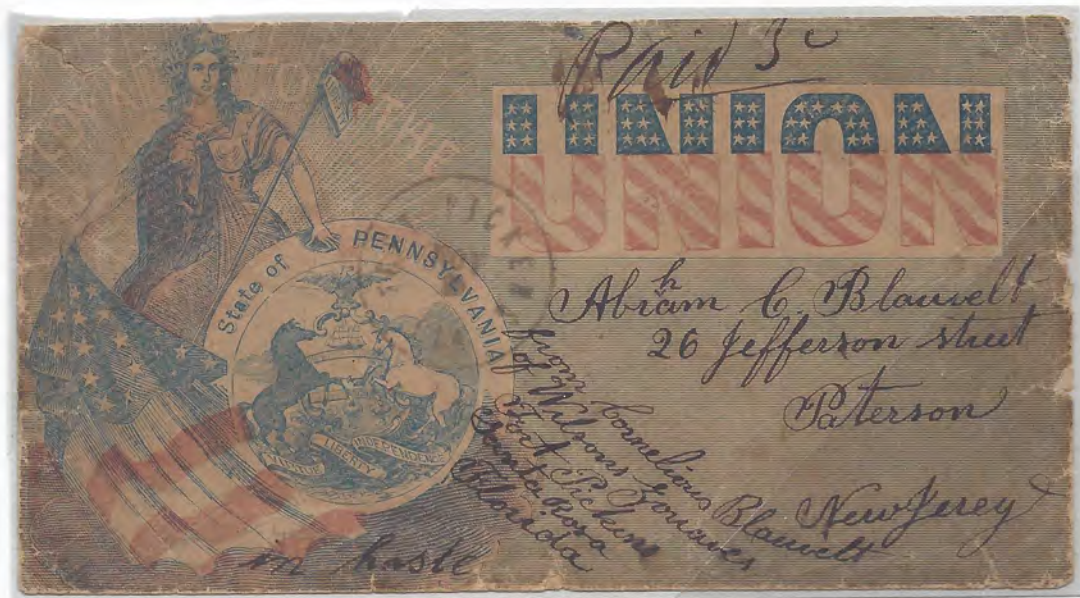 Paid 3c
UNION
FOR THE
State of PENNSYLVANIA
VIRTUE LIBERTY INDEPENDENCE
PICKEN
Abrᵃm C. Blauvelt
26 Jefferson street
Paterson
New Jersey
from Cornelious Blauvelt
of Wilsons Zouaves
Fort Pickens
Santa Rosa
Florida
in haste